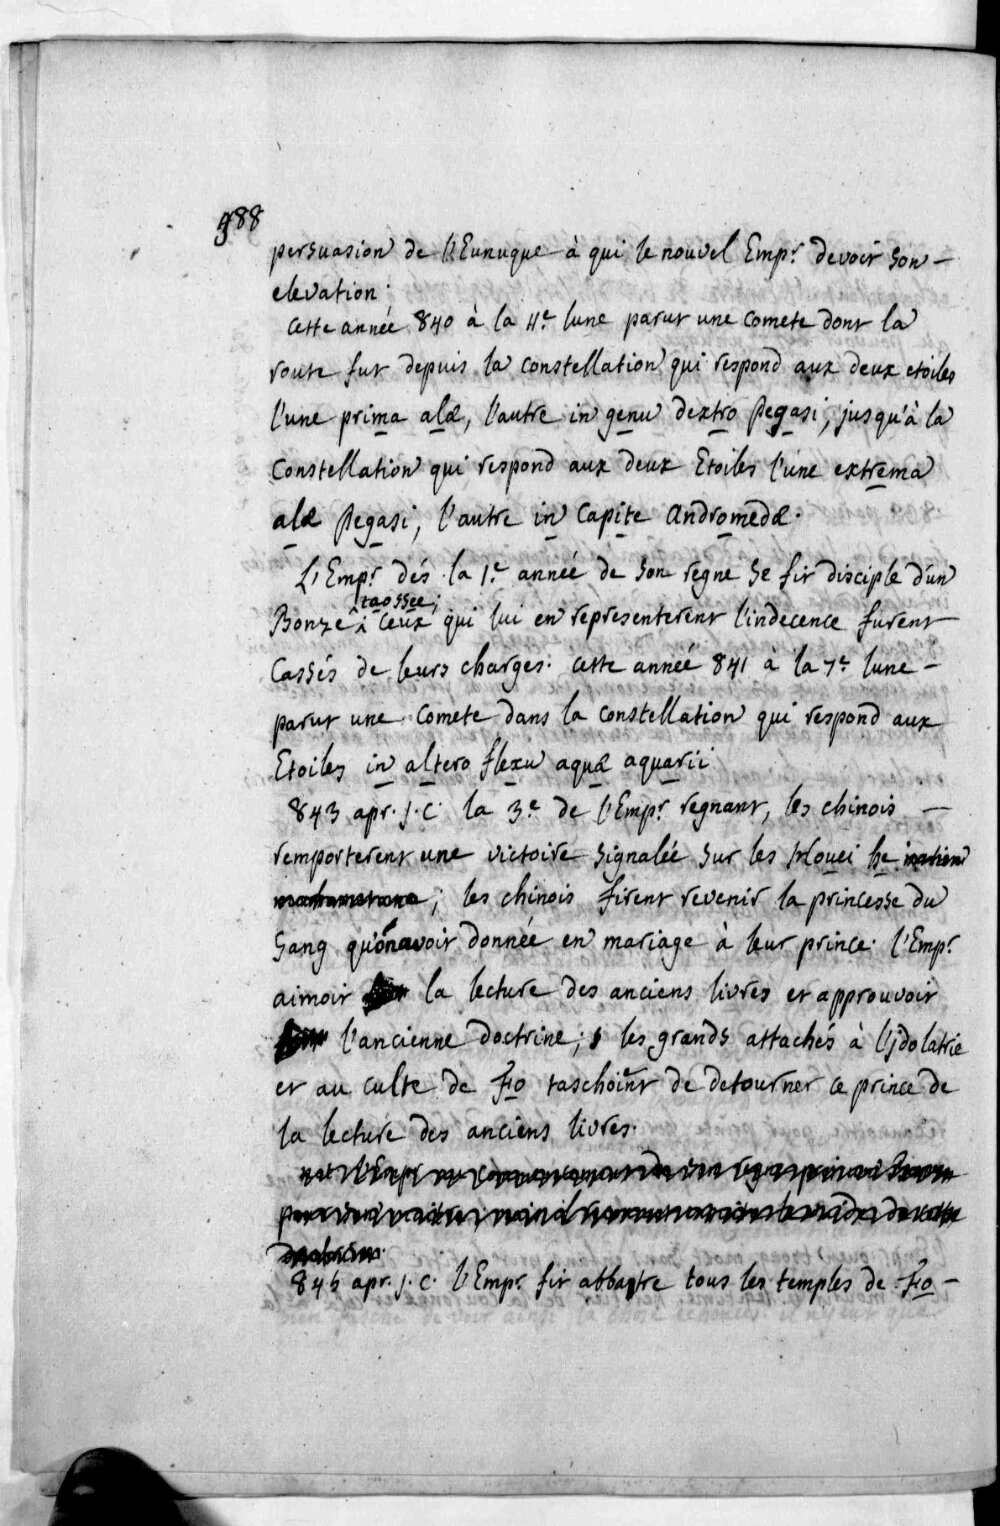 988
persuasion de l'Eunuque à qui le nouvel Emp.r devoit son
elevation.
Cette année 840 à la 11.e lune parut une comete dont la
route fut depuis la constellation qui respond aux deux etoiles
l'une prima alæ, l'autre in genu dextro Pegasi, jusqu'à la
Constellation qui respond aux deux Etoiles l'une extrema
alæ Pegasi, l'autre in Capite Andromedæ.
L'Emp.r dés la 1.e année de son regne se fit disciple d'un
Bonze taossee; ceux qui lui en representerent l'indecence furent
Cassés de leurs charges. cette année 841 à la 7.e lune
parut une Comete dans la constellation qui respond aux
Etoiles in altero flexu aquæ aquarii
843 apr. j. C. la 3.e de l'Emp.r regnant, les chinois
remporterent une victoire signalée sur les Houei he
; les chinois firent revenir la princesse du
Sang qu'on avoit donnée en mariage à leur prince. l'Emp.r
aimoit la lecture des anciens livres et approuvoit
l'ancienne doctrine; les grands attachés à l'jdolatrie
et au culte de Fo taschoint de detourner ce prince de
la lecture des anciens livres.
845 apr. j. C. l'Emp.r fit abbattre tous les temples de Fo